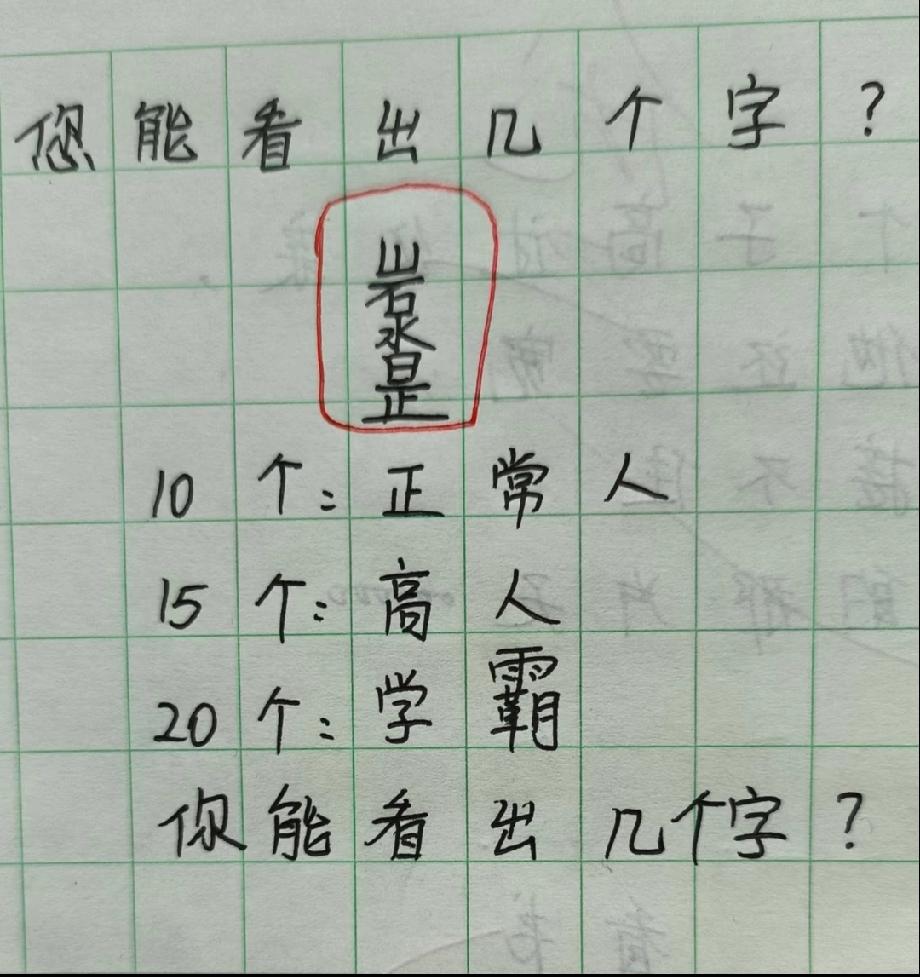 您能看出几个字？
山石水日正
10个：正常人
15个：高人
20个：学霸
你能看出几个字？